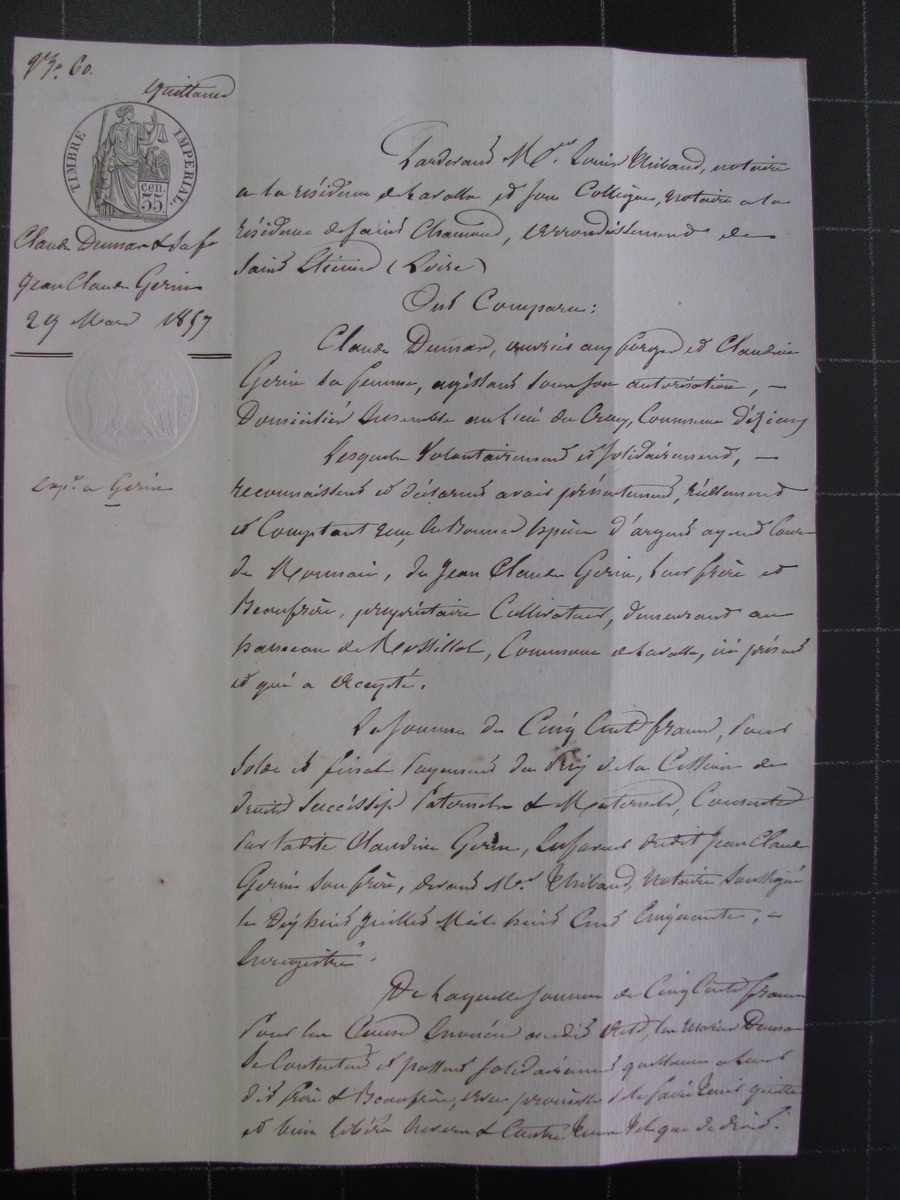 N.º 60.
quittance
TIMBRE IMPERIAL.
35 cen.
Claude Dumas & sa fe
Jean Claude Gerin
29 Mars 1857
exp. a Gerin
Pardevant Me. Louis Thibaud, notaire
a la résidence de Lavalla et son Collègue, notaire a la
résidence de Saint Chamond, arrondissement de
Saint Etienne (Loire)
Ont Comparu:
Claude Dumas, ouvrier aux forges et Claudine
Gerin sa femme, agissant sous son autorisation, –
Domiciliés Ensemble au lieu du Cray, Commune d'izieux
Lesquels Volontairement et solidairement, –
reconnaissent et déclarent avoir présentement, réellement
et Comptant reçu En Bonnes Espèces d'argent ayant Cours
de Monnaie, de Jean Claude Gerin, leur frère et
Beaufrère, propriétaire Cultivateur, demeurant au
hameau de, Commune de Lavalla, ici présent
et qui a accepté.
La somme de Cinq Cents francs, pour
Solde et final payement du Prix de la Cession de
droits Successifs Paternels & Maternels, Consentie
par ladite Claudine Gerin, En faveur dudit Jean Claude
Gerin son frère, devant Me. Thibaud, Notaire Soussigné
le Dix huit Juillet Mil huit Cent Cinquante, –
Enregistré.
De Laquelle somme de Cinq Cents francs
Pour les Causes Enoncées audit acte, les mariés Dumas
se Contentent et passent solidairement quittance a leur
dit frère & Beaufrère, avec promesse de le faire tenir quitte
et bien libéré Envers & Contre tous de que de droit.